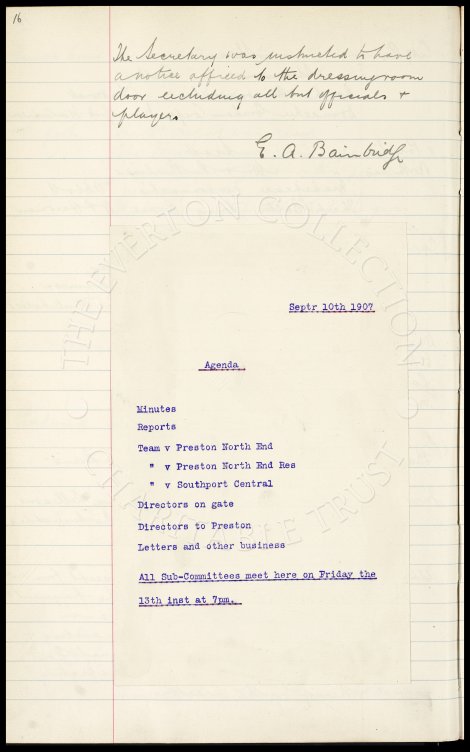 16
The Secretary was instructed to have
a notice affixed to the dressingroom
door excluding all but officials +
players
E. A. Bainbridge
Septr 10th 1907
Agenda
Minutes
Reports
Team v Preston North End
" v Preston North End Res
" v Southport Central
Directors on gate
Directors to Preston
Letters and other business
All Sub-Committees meet here on Friday the
13th inst at 7pm.
© THE EVERTON COLLECTION
CHARITABLE TRUST